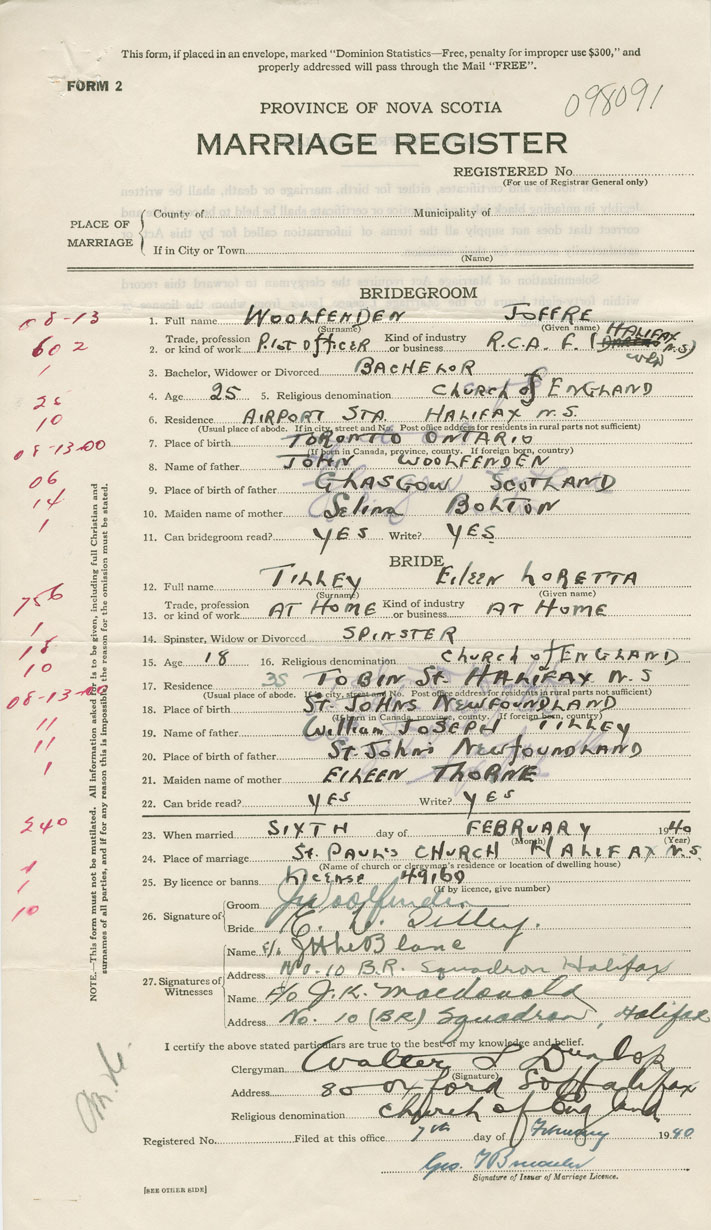 This form, if placed in an envelope, marked "Dominion Statistics—Free, penalty for improper use $300," and
properly addressed will pass through the Mail "FREE".
FORM 2
098091
PROVINCE OF NOVA SCOTIA
MARRIAGE REGISTER
REGISTERED No.
(For use of Registrar General only)
PLACE OF MARRIAGE
County of
Municipality of
If in City or Town
(Name)
BRIDEGROOM
08-13
1. Full name WOOLFENDEN JOFFRE
(Surname) (Given name)
602
2. Trade, profession or kind of work PILOT OFFICER Kind of industry or business R.C.A.F. (HALIFAX N.S)
1
3. Bachelor, Widower or Divorced BACHELOR
25
4. Age 25 5. Religious denomination CHURCH of ENGLAND
10
6. Residence AIRPORT STA. HALIFAX N.S.
(Usual place of abode. If in city, street and No. Post office address for residents in rural parts not sufficient)
08-13-00
7. Place of birth TORONTO ONTARIO
(If born in Canada, province, county. If foreign born, country)
8. Name of father JOHN WOOLFENDEN
06
9. Place of birth of father GLASGOW SCOTLAND
14
10. Maiden name of mother Selina BOLTON
1
11. Can bridegroom read? YES Write? YES
BRIDE
12. Full name TILLEY Eileen LORETTA
(Surname) (Given name)
756
13. Trade, profession or kind of work AT HOME Kind of industry or business AT HOME
1
14. Spinster, Widow or Divorced SPINSTER
18
15. Age 18 16. Religious denomination CHURCH of ENGLAND
10
17. Residence 35 TOBIN St. HALIFAX N.S
(Usual place of abode. If in city, street and No. Post office address for residents in rural parts not sufficient)
08-13-00
18. Place of birth ST. JOHNS NEWFOUNDLAND
(If born in Canada, province, county. If foreign born, country)
11
19. Name of father William JOSEPH TILLEY
11
20. Place of birth of father ST. JOHN'S NEWFOUNDLAND
1
21. Maiden name of mother EILEEN THORNE
22. Can bride read? YES Write? YES
240
23. When married SIXTH day of FEBRUARY 1940
(Month) (Year)
24. Place of marriage St. PAUL'S CHURCH HALIFAX N.S.
(Name of church or clergyman's residence or location of dwelling house)
1
25. By licence or banns License 49160
(If by licence, give number)
1
10
26. Signature of
Groom J Woolfenden
Bride E. L. Tilley.
27. Signatures of Witnesses
Name F/L
Address No. 10 B.R. Squadron Halifax
Name F/O J.K. Macdonald
Address No. 10 (BR) Squadron, Halifax
I certify the above stated particulars are to the best of my knowledge and belief.
Clergyman Walter L Dunlop
(Signature)
Address 80 Oxford St Halifax
Religious denomination Church of England
Registered No. Filed at this office 7th day of February 1940
Geo.
Signature of Issuer of Marriage Licence.
[SEE OTHER SIDE]
NOTE.—This form must not be mutilated. All information asked for is to be given, including full Christian and
surnames of all parties, and if for any reason this is impossible, the reason for the omission must be stated.